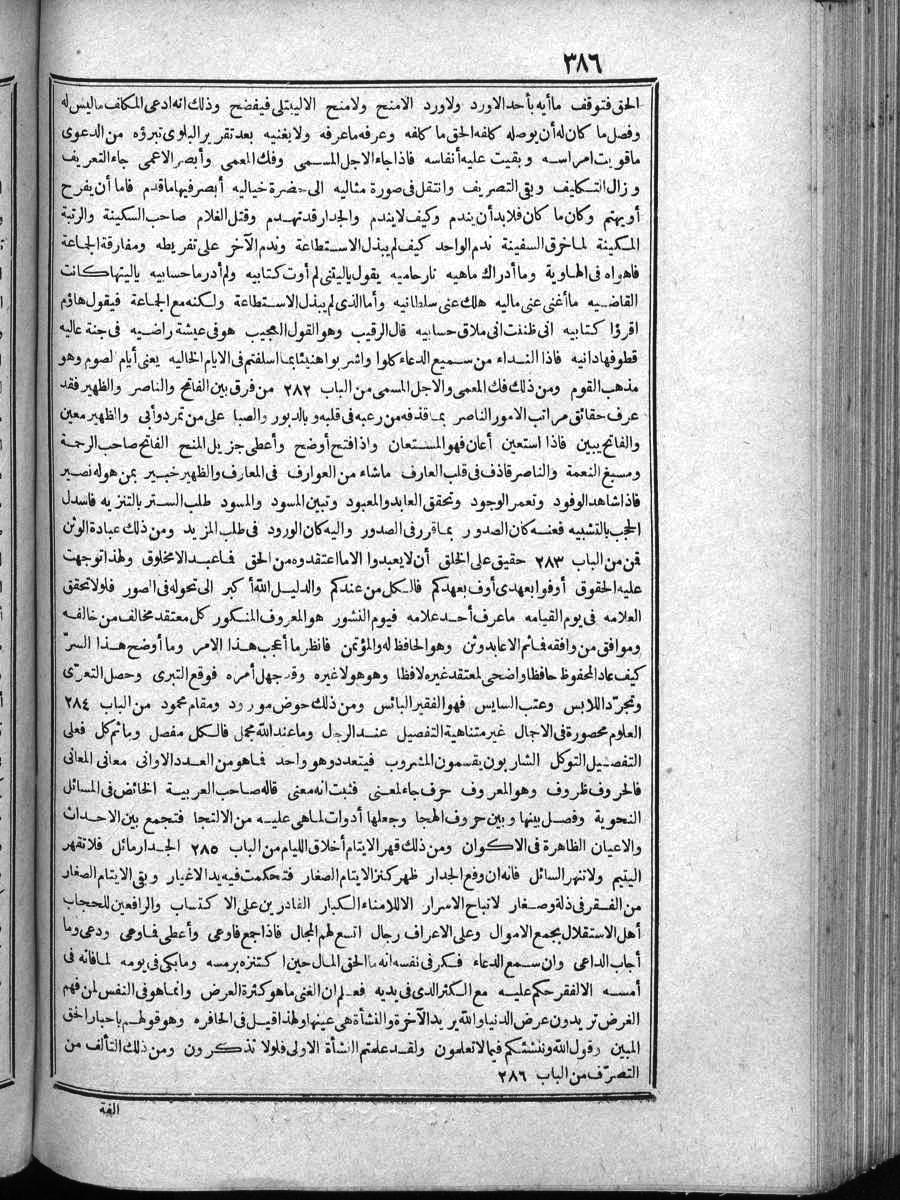 ٣٨٦
الحق فتوقف ما أيه بأحد الاورد ولاورد الامنح ولامنح الاليبتلى فيفضح وذلك انه ادعى المكلف ماليس له
وفصل ما كان له أن يوصله كلفه الحق ما كلفه وعرفه ماعرفه ولا يغنيه بعد تقرير البلوى تبرؤه من الدعوى
ماقويت امراسه وبقيت عليه أنفاسه فاذا جاء الاجل المسمى وفك المعمى وأبصر الاعمى جاء التعريف
وزال التكليف وبقى التصريف وانتقل فى صورة مثاليه الى حضرة خياليه أبصر فيها ماقدم فاما أن يفرح
أو يهتم وكان ما كان فلابد أن يندم وكيف لا يندم والجدار قد تهدم وقتل الغلام صاحب السكينة والرتبة
المكينة لما خرق السفينة ندم الواحد كيف لم يبذل الاستطاعة وندم الآخر على تفريطه ومفارقة الجماعة
فاهواه فى الهاوية وما أدراك ماهيه نار حاميه يقول ياليتنى لم أوت كتابيه ولم أدر ماحسابيه ياليتها كانت
القاضيه ما أغنى عنى ماليه هلك عنى سلطانيه وأما الذى لم يبذل الاستطاعة ولكنه مع الجماعة فيقول هاؤم
اقرؤا كتابيه انى ظننت انى ملاق حسابيه قال الرقيب وهو القول العجيب هو فى عيشة راضيه فى جنة عاليه
قطوفها دانيه فاذا النداء من سميع الدعاء كلوا واشربوا هنيئا بما اسلفتم فى الايام الخاليه يعنى أيام لصوم وهو
مذهب القوم ومن ذلك فك المعمى والاجل المسمى من الباب ٢٨٢ من فرق بين الفاتح والناصر والظهير فقد
عرف حقائق مراتب الامور الناصر بما قذفه من رعبه فى قلبه وبالدبور والصبا على من تمرد وأبى والظهير معين
والفاتح يبين فاذا استعين أعان فهو المستعان واذ افتح أوضح وأعطى جزيل المنح الفاتح صاحب الرحمة
ومسبغ النعمة والناصر قاذف فى قلب العارف ماشاء من العوارف فى المعارف والظهير خبير بمن هو له نصير
فاذا شاهد الوفود وتعمر الوجود وتحقق العابد والمعبود وتبين المسود والمسود طلب الستر بالتنزيه فاسدل
الحجب بالتشبيه فعنه كان الصدور بما قرر فى الصدور واليه كان الورود فى طلب المزيد ومن ذلك عبادة الوثن
قمن من الباب ٢٨٣ حقيق على الخلق أن لا يعبدوا الا ما اعتقدوه من الحق فما عبد الا مخلوق ولهذا توجهت
عليه الحقوق أوفوا بعهدى أوف بعهدكم فالكل من عندكم والدليل الله أكبر الى تحوله فى الصور فلولا تحقق
العلامه فى يوم القيامه ماعرف أحد علامه فيوم النشور هو المعروف المنكور كل معتقد مخالف من خالفه
وموافق من وافقه فماثم الا عابد وثن وهو الحافظ له والمؤتمن فانظر ما أعجب هذا الامر وما أوضح هذا السر
كيف عاد المحفوظ حافظا واضحى لمعتقد غيره لافظا وهو هو لا غيره وقد جهل أمره فوقع التبرى وحصل التعرى
وتجرد اللابس وعتب السايس فهو الفقير البائس ومن ذلك حوض مورود ومقام محمود من الباب ٢٨٤
العلوم محصورة فى الاجمال غير متناهية التفصيل عند الرجل وما عند الله مجمل فالكل مفصل وماثم كل فعلى
التفصيل التوكل الشاربون يقسمون المشروب فيتعدد وهو واحد فما هو من العدد الاوانى معانى المعانى
فالحروف ظروف وهو المعروف حرف جاء لمعنى فثبت انه معنى قاله صاحب العربية الخائض فى المسائل
النحوية وفصل بينها وبين حروف الهجا وجعلها أدوات لما هى عليه من الالتجا فتجمع بين الاحداث
والاعيان الظاهرة فى الاكوان ومن ذلك قهر الايتام أخلاق الليام من الباب ٢٨٥ الجدار مائل فلا تقهر
اليتيم ولا تنهر السائل فانه ان وقع الجدار ظهر كنز الايتام الصغار فتحكمت فيه يد الاغيار وبقى الايتام الصغار
من الفقر فى ذلة وصغار لا تباح الاسرار الا للامناء الكبار القادرين على الاكتساب والرافعين للحجاب
أهل الاستقلال بجمع الاموال وعلى الاعراف رجال اتسع لهم المجال فاذا جمع فاوعى وأعطى فاوعى ودعى وما
أجاب الداعى وان سمع الدعاء فكر فى نفسه انه ما الحق المال حين اكتنزه برمسه وما بكى فى يومه لما فاته فى
أمسه الا لفقر حكم عليه مع الكثر الذى فى يديه فعلم ان الغنى ما هو كثرة العرض وانما هو فى النفس لمن فهم
الغرض تريدون عرض الدنيا والله يريد الآخرة والنشأة هى عينها ولهذا قيل فى الحافره وهو قولهم باخبار الحق
المبين وقول الله وننشئكم فيما لا تعلمون ولقد علمتم النشأة الاولى فلولا تذكرون ومن ذلك التألف من
التصرف من الباب ٢٨٦
الفة